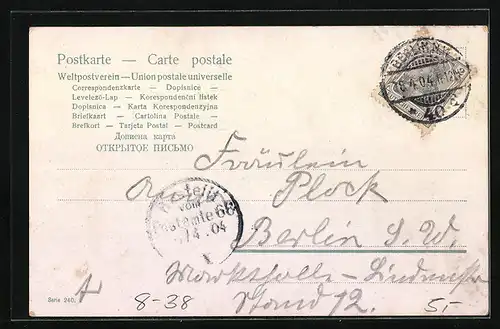 Postkarte — Carte postale
Weltpostverein — Union postale universelle
Correspondenzkarte – Dopisnice –
Levelező-Lap – Korespondenční listek
Dopisnica – Karta Korespondenzyjna
Briefkaart – Cartolina Postale –
Brefkort – Tarjeta Postal – Postcard
Дописна карта
ОТКРЫТОЕ ПИСЬМО
BERLIN
6.4.04
40
Fräulein
Plock
Bestellt
vom
Postamte 68
/4 .04
Berlin S. W.
Markthalle - Lindenstr
Stand 72.
Serie 240.
8-38
5,-